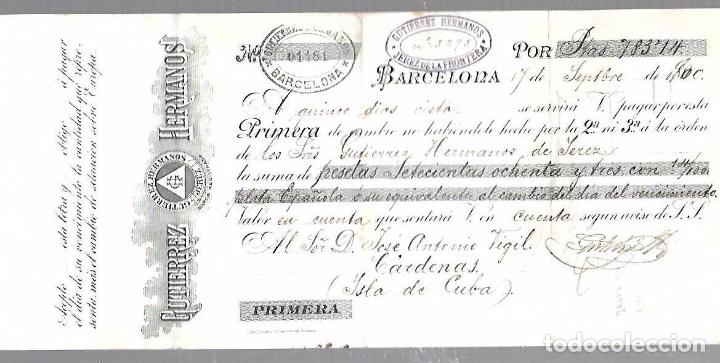 Acepto esta letra y obligo á pagar
el dia de su vencimiento la cantidad que repre-
senta, más el cambio de situación sobre Europa.
GUTIERREZ HERMANOS
GUTIERREZ HERMANOS
JEREZ
GUTIERREZ HERMANOS
01261
BARCELONA
GUTIERREZ HERMANOS
JEREZ DE LA FRONTERA
POR Ptas 783'14
BARCELONA 17 de Septbre de 1900.
A quince dias vista se servirá V. pagar por esta
Primera de cambio no habiéndolo hecho por la 2ª ni 3ª á la órden
de los Sres Gutierrez Hermanos de Jerez
la suma de pesetas Setecientas ochenta y tres con 14/100
plata Española o su equivalente al cambio del dia del vencimiento
Valor en cuenta que sentará V. en cuenta segun aviso de S.S.
Al Sor D. Jose Antonio Vigil.
Cárdenas
(Isla de Cuba)
PRIMERA
todocoleccion